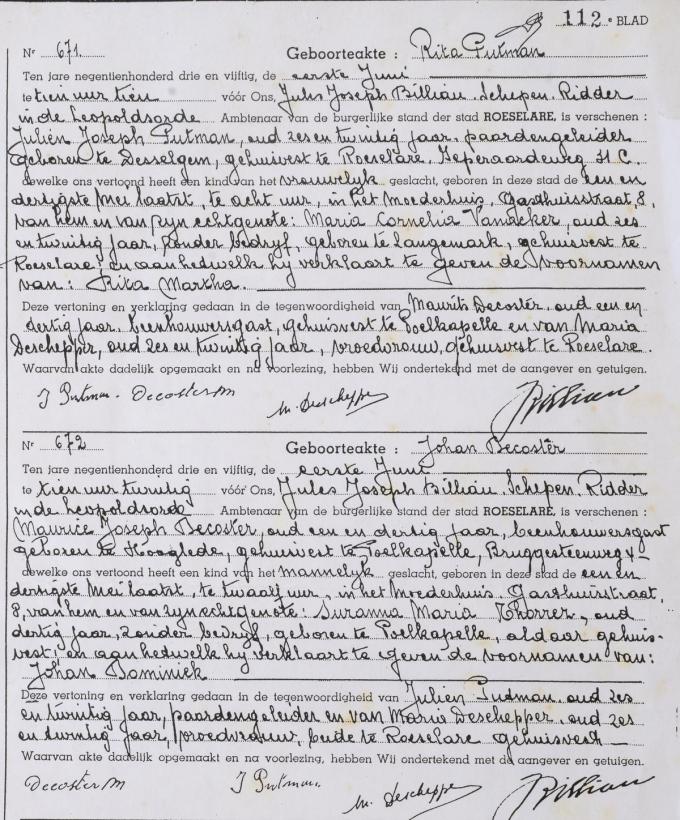 112e BLAD
Nr 671. Geboorteakte : Rita Putman
Ten jare negentienhonderd drie en vijftig, de eerste Juni
te tien uur tien vóór Ons, Jules Joseph Billiau, Schepen, Ridder
in de Leopoldsorde Ambtenaar van de burgerlijke stand der stad ROESELARE, is verschenen :
Julien Joseph Putman, oud zes en twintig jaar, paardengeleider
geboren te Desselgem, gehuisvest te Roeselare, Ieperaardeweg 51 C.
dewelke ons vertoond heeft een kind van het vrouwelyk geslacht, geboren in deze stad de een en
dertigste Mei laatst, te acht uur, in het Moederhuis, Gasthuisstraat, 8,
van hem en van zyn echtgenote: Maria Cornelia Vandeker, oud zes
en twintig jaar, zonder bedryf, geboren te Langemark, gehuisvest te
Roeselare; en aan hetwelk hy verklaart te geven de voornamen
van: Rita Martha.
Deze vertoning en verklaring gedaan in de tegenwoordigheid van Maurits Decoster, oud een en
dertig jaar, beenhouwersgast, gehuisvest te Poelkapelle en van Maria
Deschepper, oud zes en twintig jaar, vroedvrouw, gehuisvest te Roeselare.
Waarvan akte dadelijk opgemaakt en na voorlezing, hebben Wij ondertekend met de aangever en getuigen.
J Putman. Decoster M M. Deschepper JBilliau
Nr 672 Geboorteakte : Johan Decoster
Ten jare negentienhonderd drie en vijftig, de eerste Juni
te tien uur twintig vóór Ons, Jules Joseph Billiau, Schepen, Ridder
in de Leopoldsorde Ambtenaar van de burgerlijke stand der stad ROESELARE, is verschenen :
Maurice Joseph Decoster, oud een en dertig jaar, beenhouwersgast
geboren te Hooglede, gehuisvest te Poelkapelle, Bruggesteenweg 4
dewelke ons vertoond heeft een kind van het mannelyk geslacht, geboren in deze stad de een en
dertigste Mei laatst, te twaalf uur, in het Moederhuis, Gasthuisstraat,
8, van hem en van zyn echtgenote: Suzanna Maria Thorrez, oud
dertig jaar, zonder bedryf, geboren te Poelkapelle, aldaar gehuis-
vest; en aan hetwelk hy verklaart te geven de voornamen van:
Johan Dominiek
Deze vertoning en verklaring gedaan in de tegenwoordigheid van Julien Putman, oud zes
en twintig jaar, paardengeleider en van Maria Deschepper, oud zes
en twintig jaar, vroedvrouw, beide te Roeselare gehuisvest
Waarvan akte dadelijk opgemaakt en na voorlezing, hebben Wij ondertekend met de aangever en getuigen.
Decoster M J Putman. M. Deschepper JBilliau